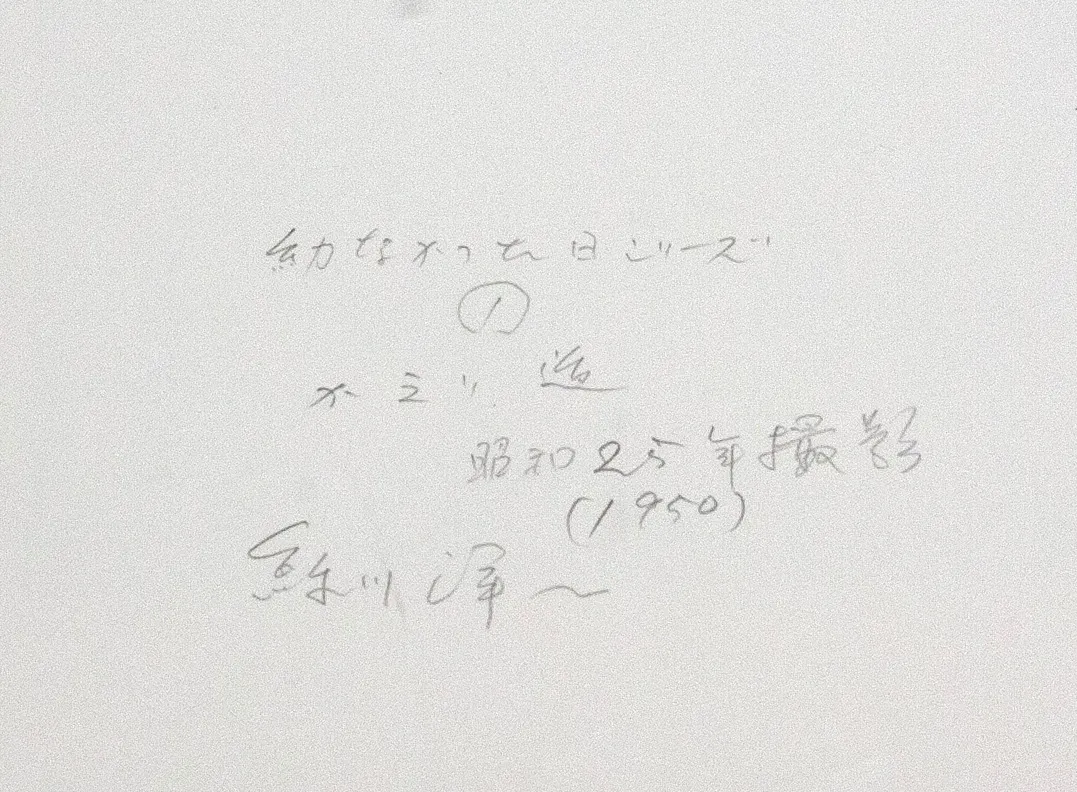 幼なかった日シリーズ
①
かえり道
昭和25年撮影
(1950)
川 渾一